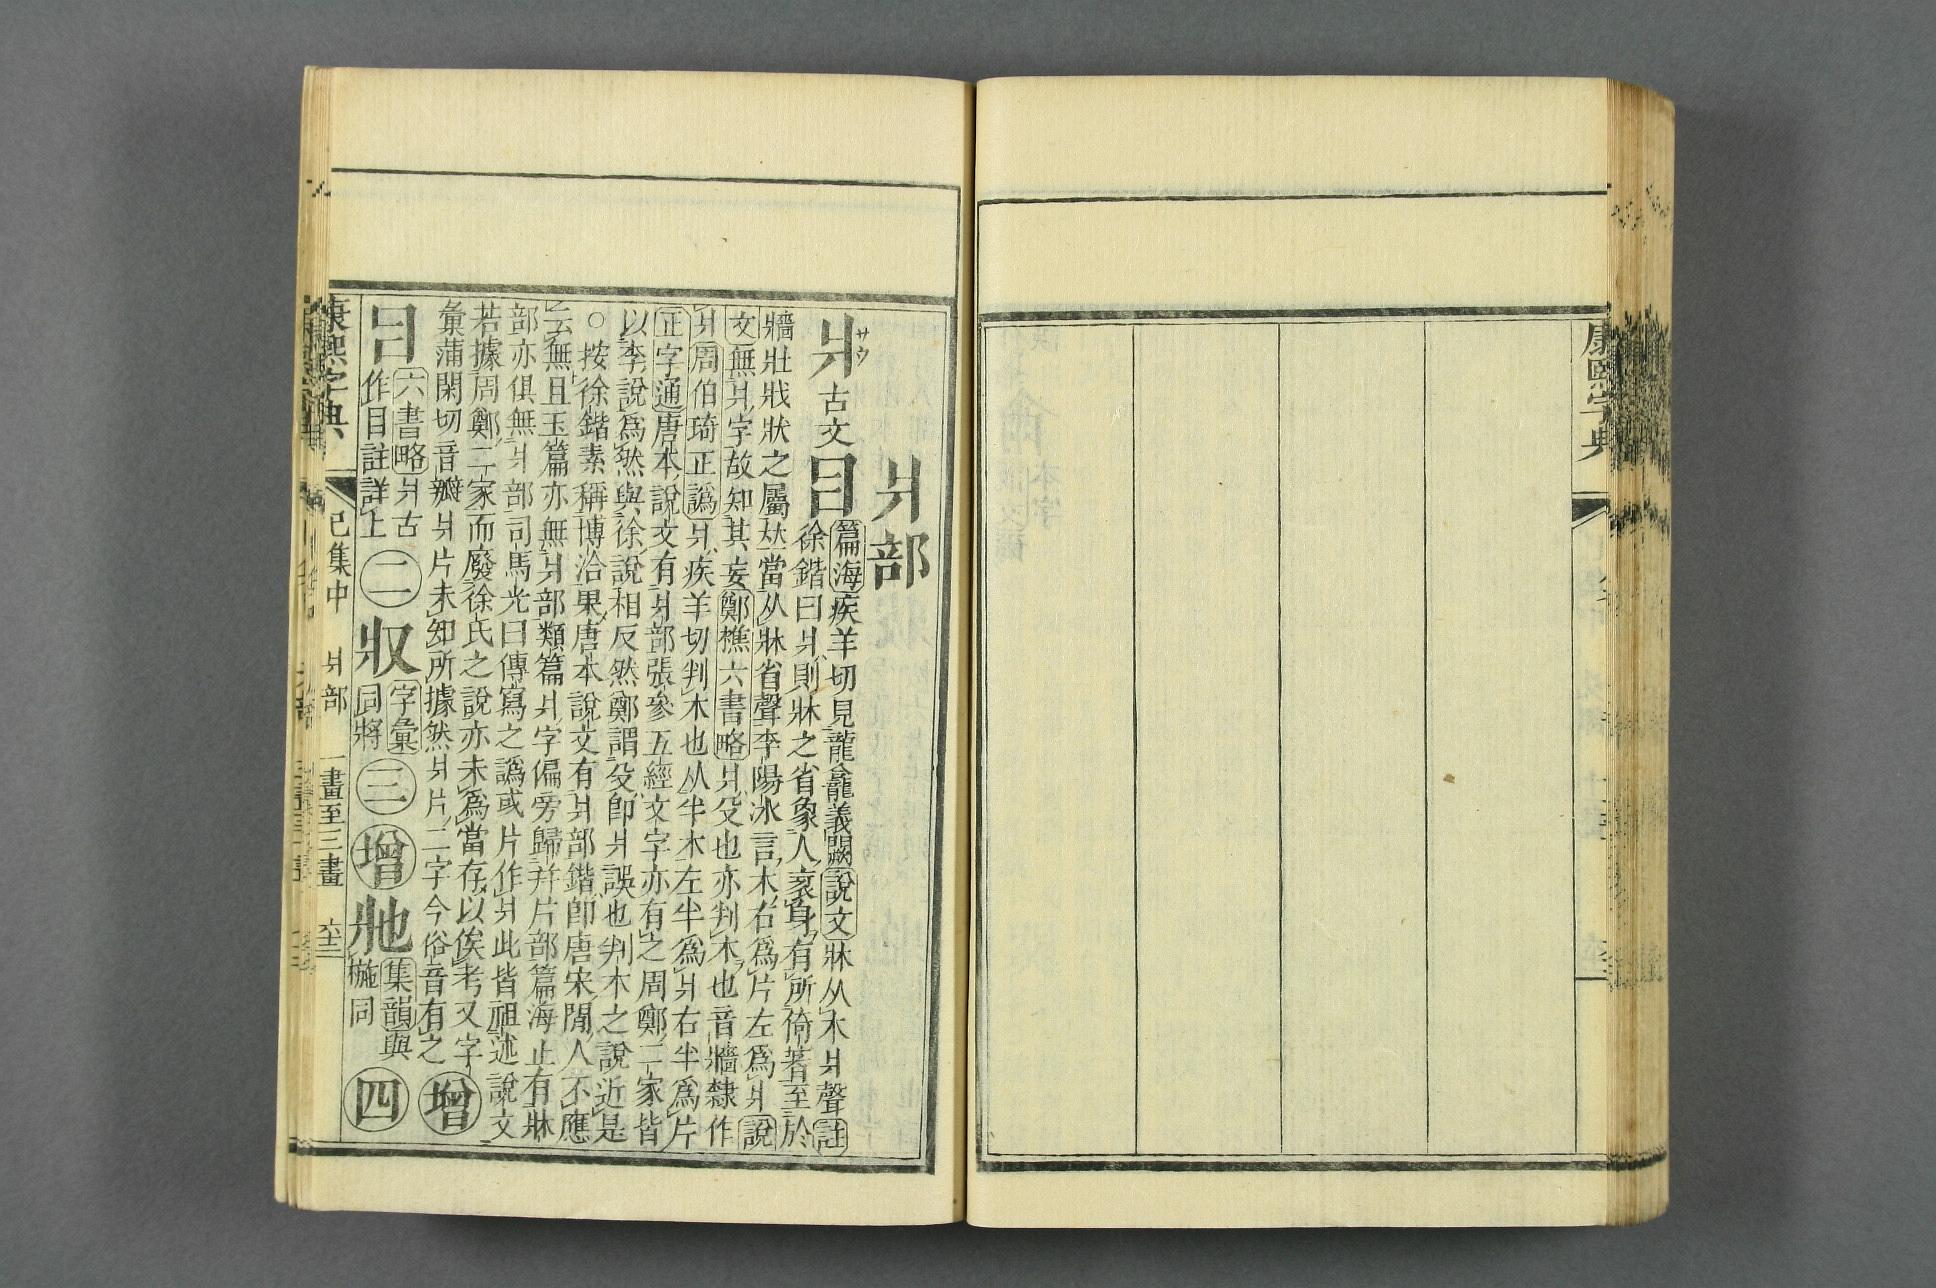 康熙字典
爿部
爿 サウ 古文 𤕪 篇海疾羊切見龍龕義闕說文牀从木爿聲註
徐鍇曰爿則牀之省象人衺身有所倚著至於
牆壯戕狀之屬𠀤當从牀省聲李陽冰言木右爲片左爲爿說
文無爿字故知其妄鄭樵六書略爿殳也亦判木也音牆隸作
爿周伯琦正譌爿疾羊切判木也从半木左半爲爿右半爲片
正字通唐本說文有爿部張參五經文字亦有之周鄭二家皆
以李說爲然與徐說相反然鄭謂殳卽爿誤也判木之說近是
○按徐鍇素稱博洽果唐本說文有爿部鍇卽唐宋閒人不應
云無且玉篇亦無爿部類篇爿字偏旁歸幷片部篇海止有牀
部亦俱無爿部司馬光曰傳寫之譌或片作爿此皆祖述說文
若據周鄭二家而廢徐氏之說亦未爲當存以俟考又字
彙蒲閑切音瓣爿片未知所據然爿片二字今俗音有之 增
𤕪 六書略爿古
作目註詳上 二 𤕫 字彙
同將 三 增 𤕬 集韻與
椸同 四
康熙字典 巳集中 爿部 一畫至三畫 六十三